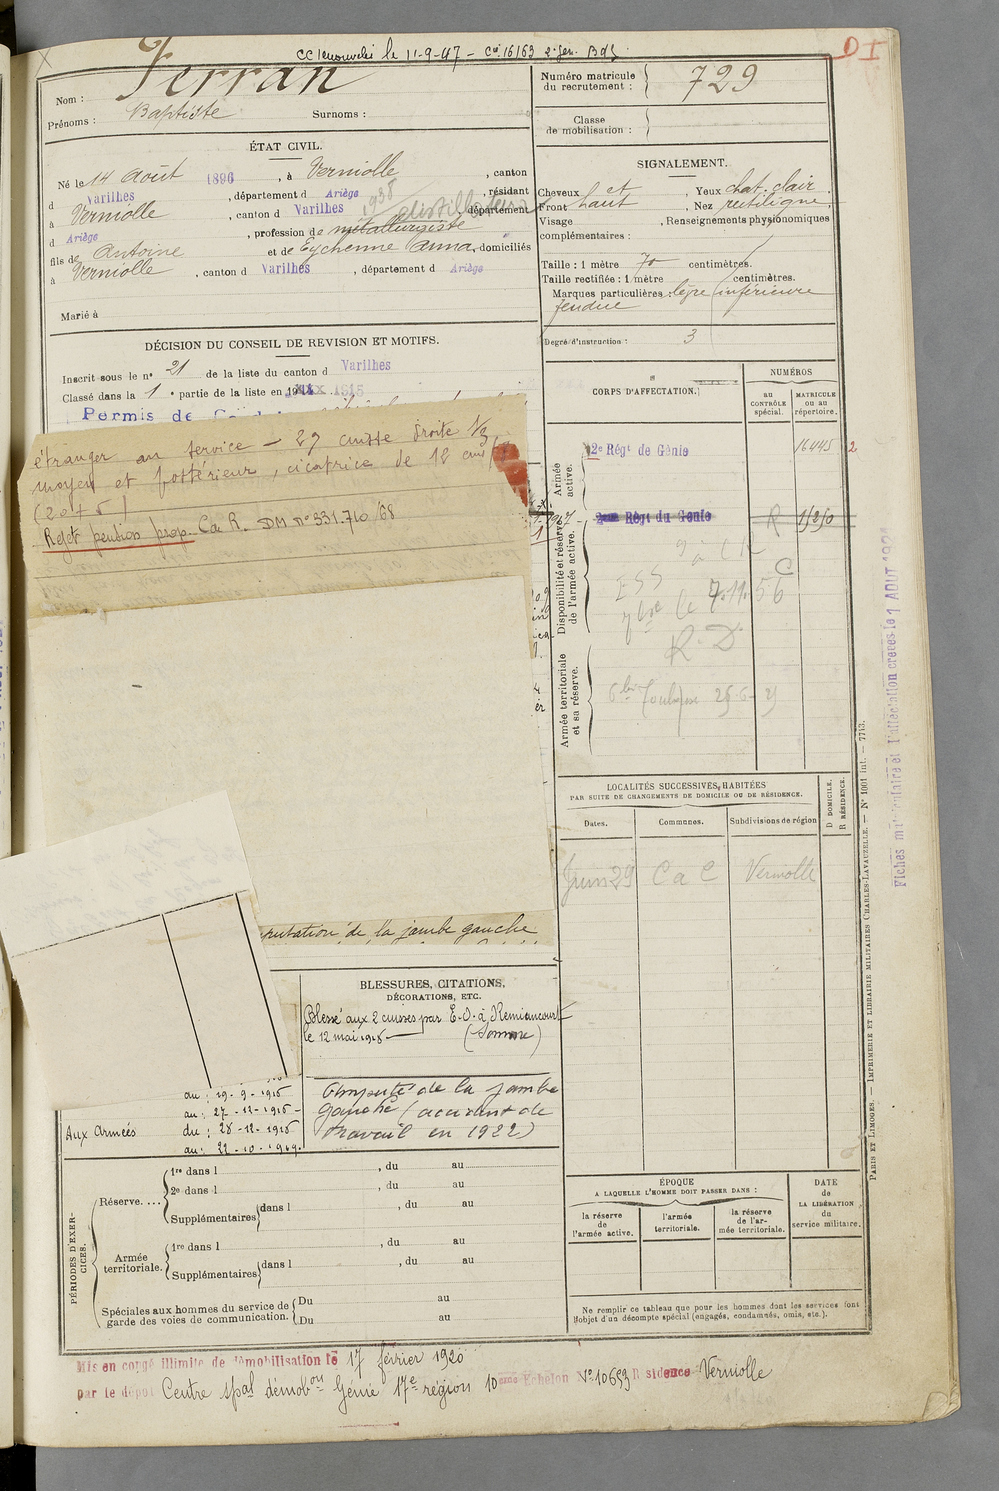 CC renouvelée le 11-9-47 - Cie 16163 2e Gen. Bdx
D I
Nom : Ferran
Prénoms : Baptiste Surnoms :
Numéro matricule
du recrutement : 729
Classe
de mobilisation :
ÉTAT CIVIL.
Né le 14 Août 1896, à Verniolle, canton
d Varilhes, département d Ariège, résidant
à Verniolle, canton d Varilhes, département
d Ariège, profession de métallurgiste
1938 distillateur
fils de Antoine et de Eychenne Anna, domiciliés
à Verniolle, canton d Varilhes, département d Ariège
Marié à
SIGNALEMENT.
Cheveux ch et, Yeux chat. clair
Front haut, Nez rectiligne
Visage, Renseignements physionomiques
complémentaires :
Taille : 1 mètre 70 centimètres.
Taille rectifiée : 1 mètre centimètres.
Marques particulières : lèvre inférieure
fendue
Degré d'instruction : 3
DÉCISION DU CONSEIL DE REVISION ET MOTIFS.
Inscrit sous le n° 21 de la liste du canton d Varilhes
Classé dans la 1e partie de la liste en 1915
Permis de
étranger au service - 2) cuisse droite 1/3
moyen et postérieur, cicatrice de 12 cm/
(20 + 5)
Rejet pension prop. C. R. DM N° 331.710/68
putation de la jambe gauche
CORPS D'AFFECTATION.
NUMÉROS
au
CONTRÔLE
spécial.
MATRICULE
ou au
répertoire.
Armée
active.
2e Régt de Génie 16445 2
Disponibilité et réserve
de l'armée active.
2ème Régt du Génie R 15250
ESS
le 7.11.56
R. D.
Armée territoriale
et sa réserve.
Toulouse 25-6-29
LOCALITÉS SUCCESSIVES HABITÉES
PAR SUITE DE CHANGEMENTS DE DOMICILE OU DE RÉSIDENCE.
Dates.
Communes.
Subdivisions de région
D DOMICILE.
R RÉSIDENCE.
Juin 29 C a C Verniolle
BLESSURES, CITATIONS,
DÉCORATIONS, ETC.
Blessé aux 2 cuisses par E. O. à Remiancourt
le 12 mai 1918 - (Somme)
Amputé de la jambe
gauche (accident de
travail en 1922)
au : 19-9-1918
au : 27-12-1918-
Aux Armées du : 28-12-1918
au : 22-10-1919.
PÉRIODES D'EXERCICES.
Réserve....
1re dans l , du au
2e dans l , du au
Supplémentaires dans l , du au
Armée
territoriale.
1re dans l , du au
Supplémentaires dans l , du au
Spéciales aux hommes du service de
garde des voies de communication.
Du au
Du au
ÉPOQUE
A LAQUELLE L'HOMME DOIT PASSER DANS :
la réserve
de
l'armée active.
l'armée
territoriale.
la réserve
de l'armée territoriale.
DATE
de
LA LIBÉRATION
du
service militaire.
Ne remplir ce tableau que pour les hommes dont les services font
l'objet d'un décompte spécial (engagés, condamnés, omis, etc.).
PARIS ET LIMOGES. — IMPRIMERIE ET LIBRAIRIE MILITAIRES CHARLES-LAVAUZELLE. — N° 1001 int. — 7713.
Fiches matriculaire et l'affectation créées le 1 AOUT 1921
Mis en congé illimité de démobilisation le 17 février 1920
par le dépôt Centre spal démobon Génie 17e région 10ème Echelon N° 10653 Résidence Verniolle